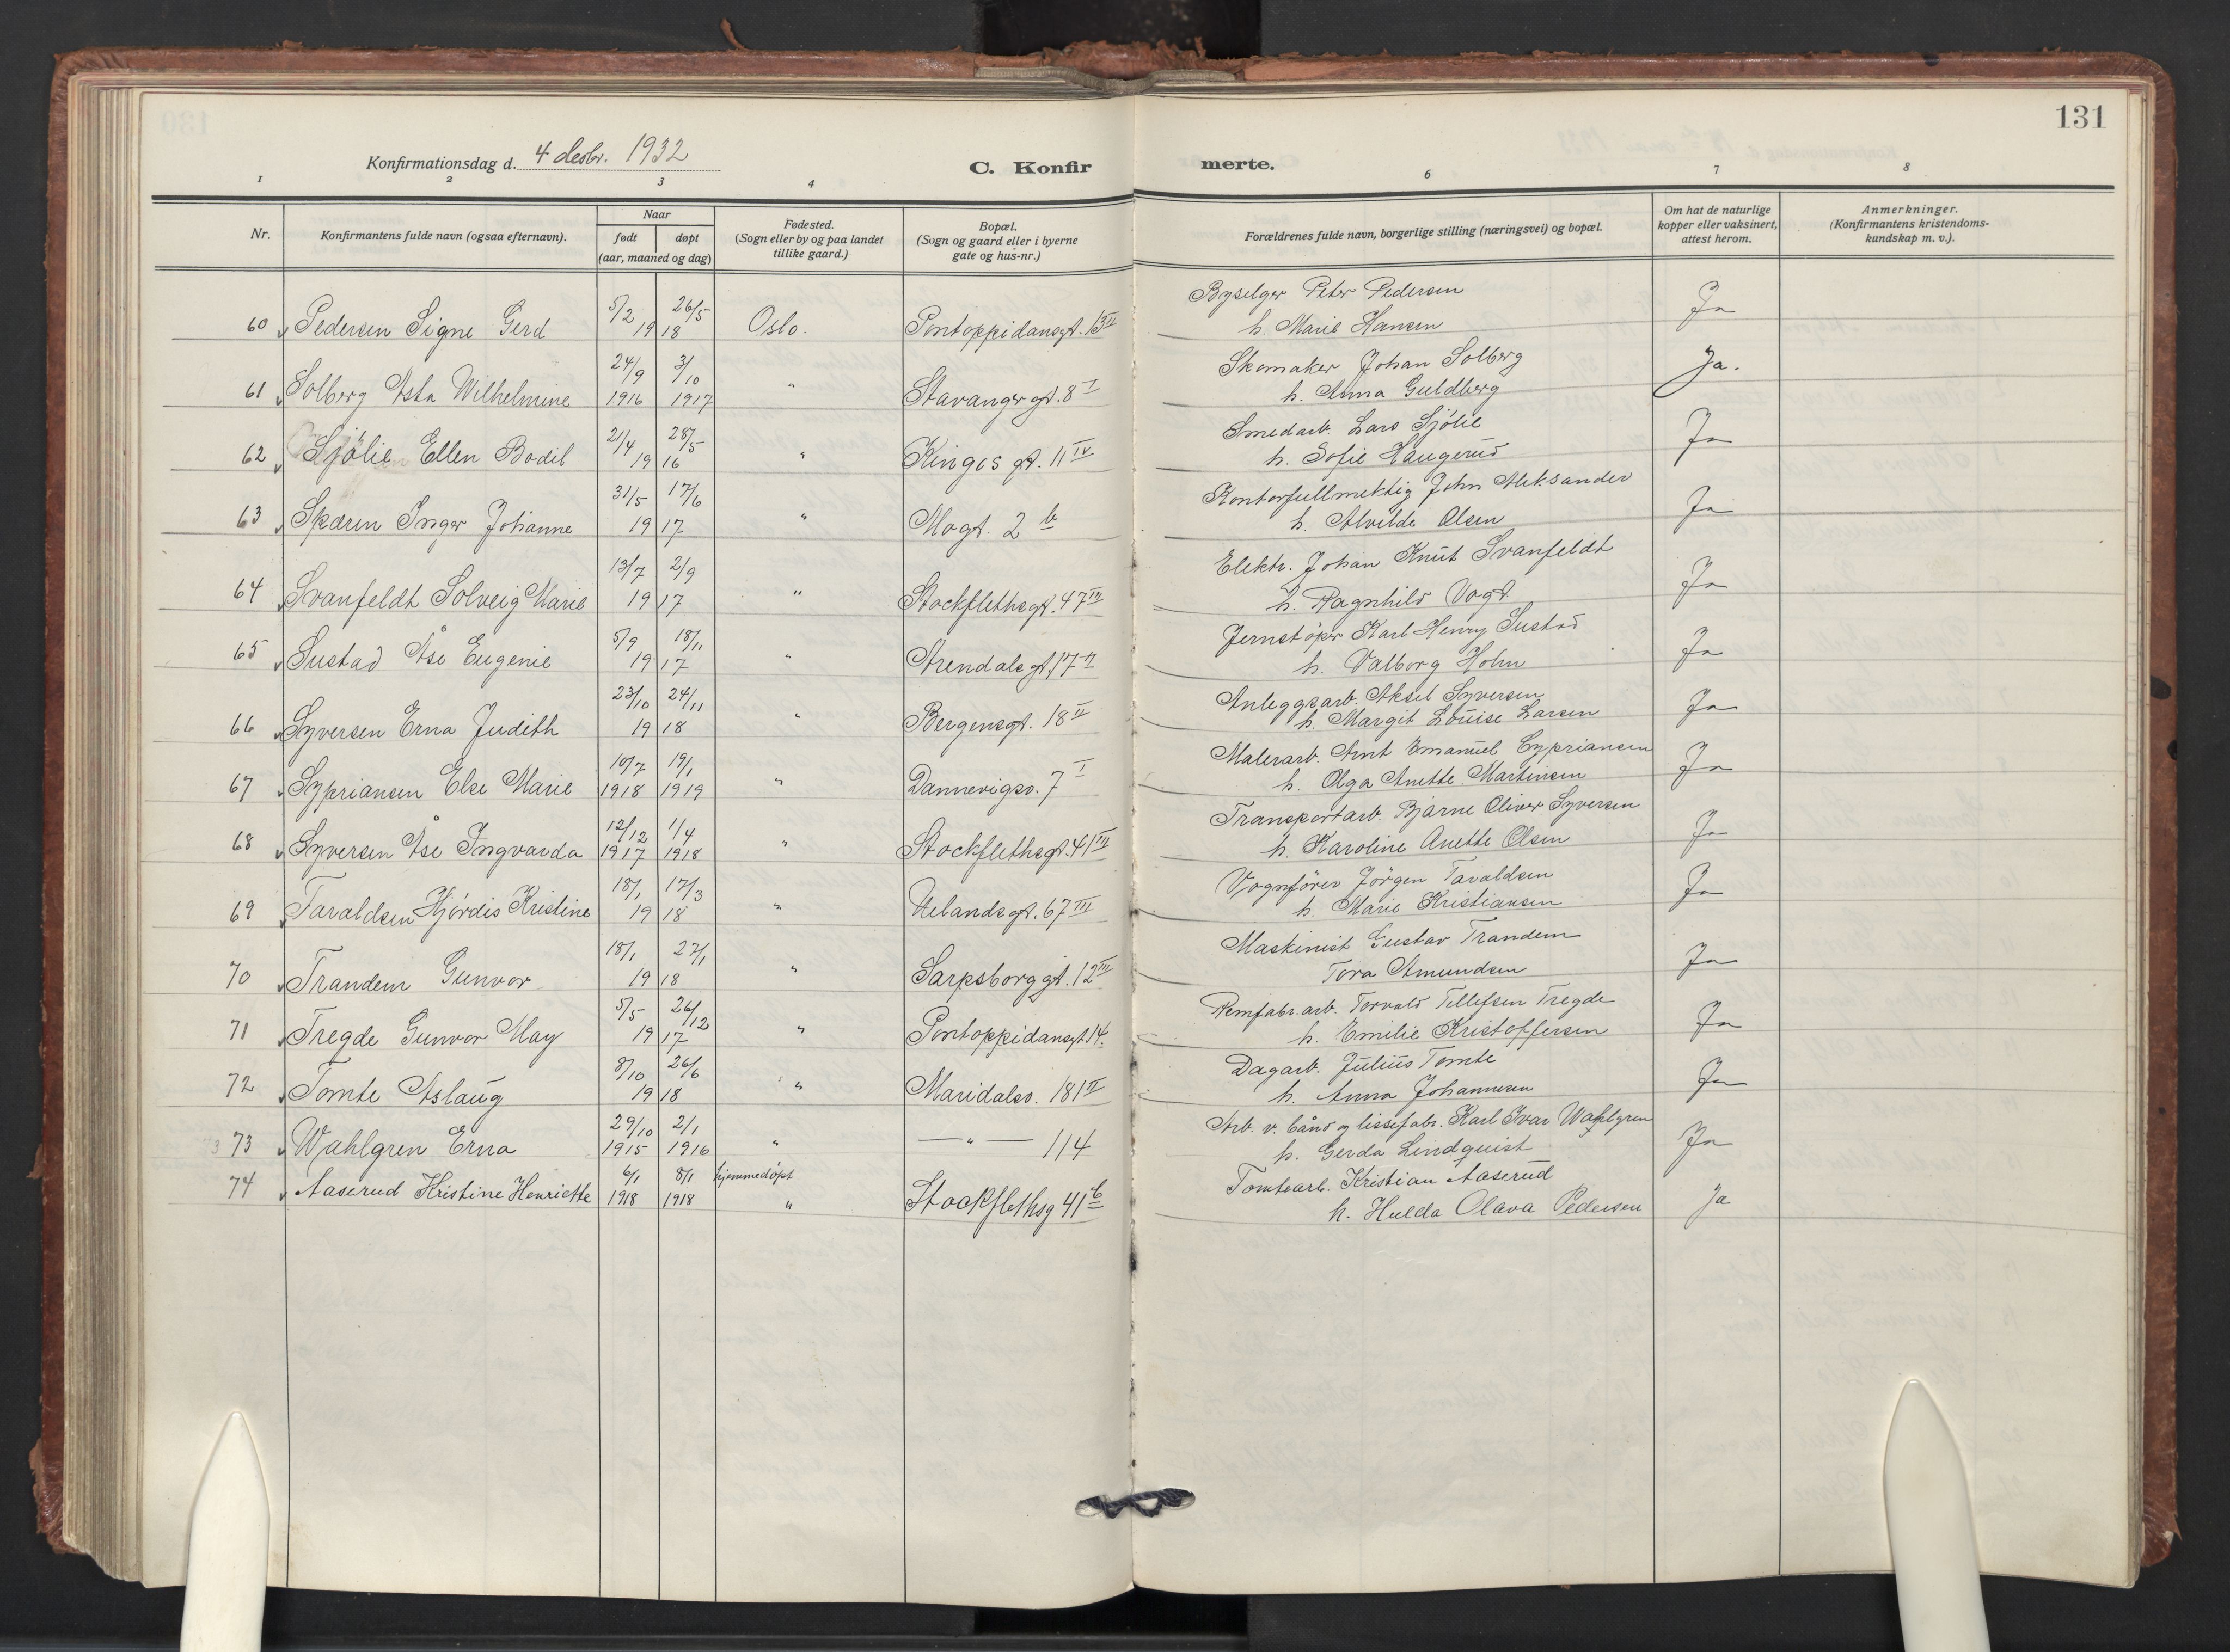 131
Konfirmationsdag d. 4 desbr. 1932
C. Konfirmerte.
1 2 3 4 6 7 8
Nr. Konfirmantens fulde navn (ogsaa efternavn). Naar født døpt (aar, maaned og dag) Fødested. (Sogn eller by og paa landet tillike gaard.) Bopæl. (Sogn og gaard eller i byerne gate og hus-nr.) Forældrenes fulde navn, borgerlige stilling (næringsvei) og bopæl. Om hat de naturlige kopper eller vaksinert, attest herom. Anmerkninger. (Konfirmantens kristendomskundskap m. v.).
60 Pedersen Signe Gerd 5/2 26/5 1918 Oslo. Pontoppidansgt. 13 II Byselger Peter Pedersen Ja
h. Marie Hansen
61 Solberg Asta Wilhelmine 24/9 1916 3/10 1917 " Stavangergt. 8 I Skomaker Johan Solberg Ja.
h. Anna Guldberg
62 Sjölie Ellen Bodil 21/4 28/5 1916 " Kingos gt. 11 IV Smedarb. Lars Sjölie Ja
h. Sofie Haugerud
63 Skaren Inger Johanne 31/5 17/6 1917 " Mogt. 2 b Kontorfullmektig John Aleksander Ja
h. Alvilde Olsen
64 Svanfeldt Solveig Marie 13/7 2/9 1917 " Stockflethsgt. 47 III Elektr. Johan Knut Svanfeldt Ja
h. Ragnhild Vogt.
65 Sustad Åse Eugenie 5/9 18/11 1917 " Arendalsgt. 17 II Jernstöper Karl Henry Sustad Ja
h. Valborg Holm
66 Syversen Erna Judith 23/10 24/11 1918 " Bergensgt. 18 II Anleggsarb. Aksel Syversen Ja
h. Margit Louise Larsen
67 Sypriansen Else Marie 10/7 1918 19/1 1919 " Dannevigsv. 7 I Malerarb. Arnt Emanuel Cypriansen Ja
h. Olga Anette Martinsen
68 Syversen Åse Ingvarda 12/12 1917 1/4 1918 " Stockflethsgt. 41 III Transportarb. Bjarne Oliver Syversen Ja
h. Karoline Anette Olsen
69 Taraldsen Hjördis Kristine 18/1 17/3 1918 " Uelandsgt. 67 III Vognförer Jörgen Taraldsen Ja
h. Marie Kristiansen
70 Trandem Gunvor 18/1 27/1 1918 " Sarpsborggt. 12 III Maskinist Gustav Trandem Ja
Tora Amundsen
71 Tregde Gunvor May 5/5 26/12 1917 " Pontoppidansgt 14. Remfabr.arb. Torvald Tellefsen Tregde Ja
h. Emilie Kristoffersen
72 Tomte Aslaug 8/10 26/6 1918 " Maridalsv. 181 II Dagarb. Julius Tomte Ja
h. Anna Johannesen
73 Wahlgren Erna 29/10 1915 2/1 1916 " — " — 114 Arb. v. bånd og lissefabr. Karl Ivar Wahlgren Ja
h. Gerda Lindquist
74 Aaserud Kristine Henriette 6/1 1918 8/1 1918 hjemmedöpt " Stockflethsg 41 b Tomtearb. Kristian Aaserud Ja
h. Hulda Olava Pedersen